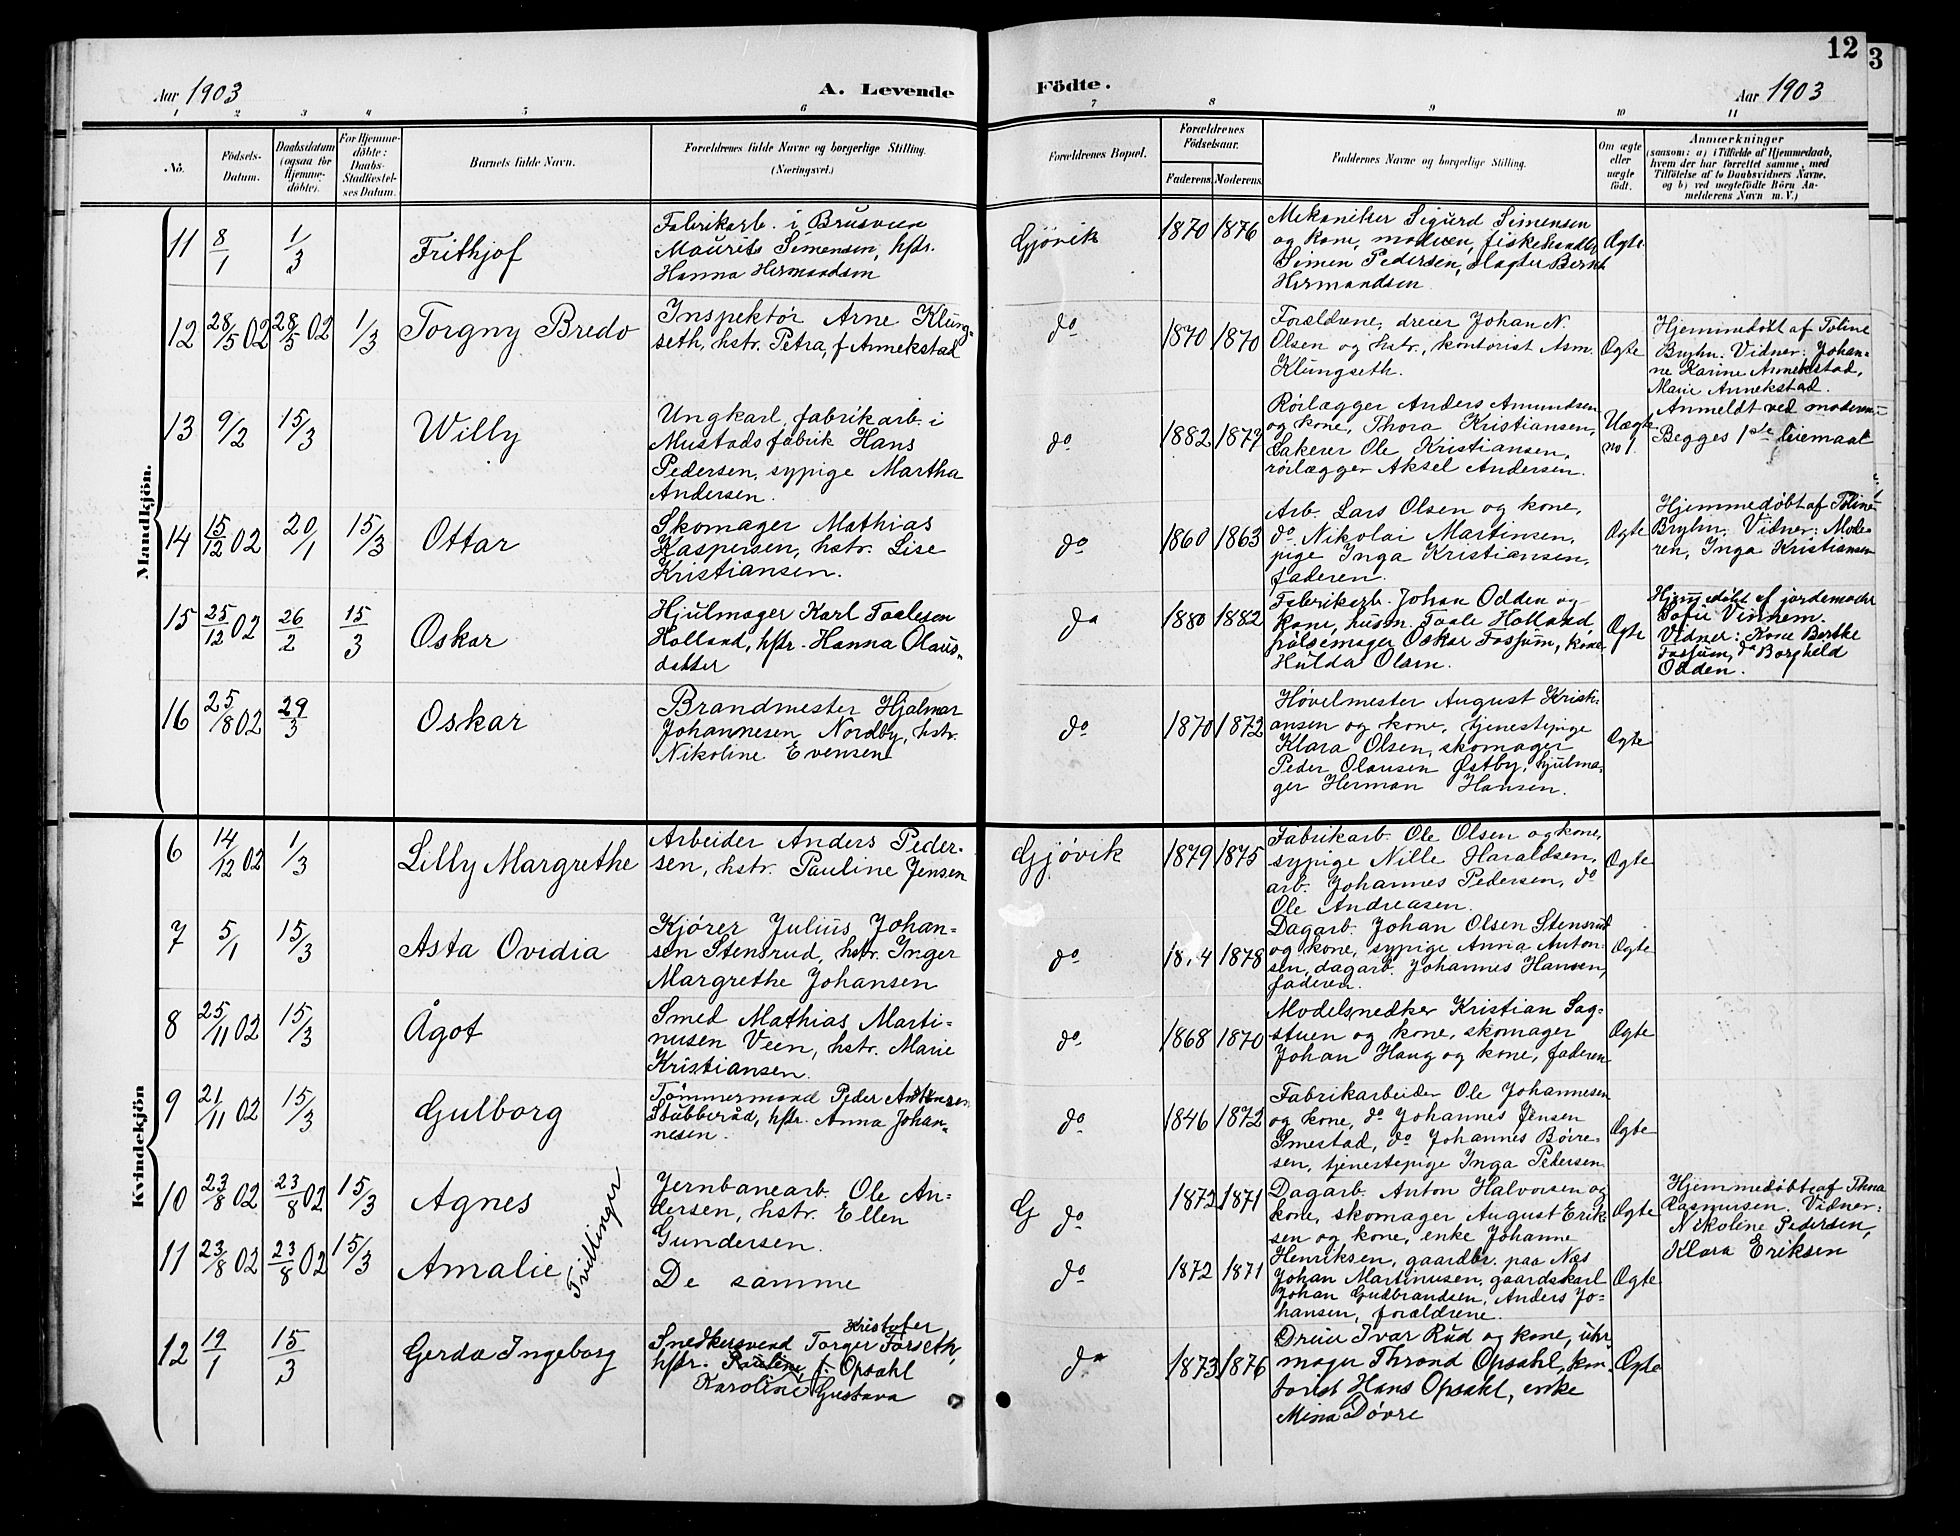 12
3
Aar 1903
A. Levende
Födte.
Aar 1903
1 2 3 4 5 6 7 8 9 10 11
No.
Födsels-
Datum.
Daabsdatum
(ogsaa for
Hjemme-
döbte).
For Hjemme-
döbte:
Daabs-
Stadfæstel-
ses Datum.
Barnets fulde Navn.
Forældrenes fulde Navne og borgerlige Stilling.
(Næringsvei.)
Forældrenes Bopæl.
Forældrenes
Födselsaar.
Faderens. Moderens.
Faddernes Navne og borgerlige Stilling.
Om ægte
eller
uægte
födt.
Anmærkninger
(saasom: a) i Tilfælde af Hjemmedaab,
hvem der har forrettet samme, med
Tilföielse af to Daabsvidners Navne,
og b) ved uægtefödte Börn An-
melderens Navn m. V.)
Mandkjön.
11
8/1
1/3
Frithjof
Fabrikarb. i Brusveen
Maurits Simensen, hstr.
Hanna Hermandsen
Gjövik
1870 1876
Mekaniker Sigurd Simensen
og kone, moderen, fiskehandler
Simen Pedersen, slagter Bernt
Hermandsen
Ægte
12
28/5 02
28/5 02
1/3
Torgny Bredo
Inspektör Arne Klung-
seth, hstr. Petra, f. Annekstad
do
1870 1870
Forældrene, dreier Johan N.
Olsen og hstr., kontorist Asm.
Klungseth.
Ægte
Hjemmedöbt af Toline
Bryhn. Vidner: Johan-
ne Karine Annekstad,
Marie Annekstad.
13
9/2
15/3
Willy
Ungkarl, fabrikarb. i
Mustads fabrik Hans
Pedersen, sypige Martha
Andersen.
do
1882 1877
Rörlægger Anders Amundsen
og kone, Thora Kristiansen,
Lakerer Ole Kristiansen,
rörlægger Aksel Andersen.
Uægte
no 1.
Anmeldt ved moderen
Begges 1ste leiemaal
14
15/12 02
20/1
15/3
Ottar
Skomager Mathias
Kaspersen, hstr. Lise
Kristiansen.
do
1860 1863
Arb. Lars Olsen og kone,
do Nikolai Martinsen,
pige Inga Kristiansen,
faderen.
Ægte
Hjemmedöbt af Toline
Bryhn. Vidner: Mode-
ren, Inga Kristiansen
15
25/12 02
26/2
15/3
Oskar
Hjulmager Karl Taalesen
Holland, hstr. Hanna Olaus-
datter
do
1880 1882
Fabrikarb. Johan Odden og
kone, husm. Taale Holland
pölsemager Oskar Fossum, kone
Hulda Olsen.
Ægte
Hjemmedöbt af jordemoder
Sofie Vinnem.
Vidner: Kone Berthe
Fossum, do Borghild
Odden.
16
25/8 02
29/3
Oskar
Brandmester Hjalmar
Johannesen Nordby, hstr.
Nikoline Evensen
do
1870 1872
Hövelmester August Kristi-
ansen og kone, tjenestepige
Klara Olsen, skomager
Peder Olausen Østby, hjulma-
ger Herman Hansen.
Ægte
Kvindekjön
6
14/12 02
1/3
Lilly Margrethe
Arbeider Anders Peder-
sen, hstr. Pauline Jensen
Gjövik
1879 1875
Fabrikarb. Ole Olsen og kone,
sypige Nille Haraldsen,
arb. Johannes Pedersen, do
Ole Andreasen.
Ægte
7
5/1
15/3
Asta Ovidia
Kjörer Julius Johan-
sen Stensrud, hstr. Inger
Margrethe Johansen
do
1878
Dagarb. Johan Olsen Stensrud
og kone, sypige Anna Anton-
sen, dagarb. Johannes Hansen,
faderen.
Ægte
8
25/11 02
15/3
Ågot
Smed Mathias Marti-
nusen Veen, hstr. Marie
Kristiansen.
do
1868 1870
Modelsnedker Kristian Sag-
stuen og kone, skomager
Johan Haug og kone, faderen
Ægte
9
21/11 02
15/3
Gulborg
Tömmermand Peder
Stubberud, hstr. Anna Johan-
nesen.
do
1846 1872
Fabrikarbeider Ole Johannesen
og kone, do Johannes Jensen
Smestad, do Johannes Böire-
sen, tjenestepige Inga Pedersen
Ægte
10
23/8 02
23/8 02
15/3
Agnes
Tvillinger
Jernbanearb. Ole An-
dersen, hstr. Ellen
Gundersen.
G do
1872 1871
Dagarb. Anton Halvorsen og
kone, skomager August Erik-
sen og kone, enke Johanne
Ægte
Hjemmedöbt af
Rasmussen. Vidner:
Nikoline Pedersen,
Klara Eriksen
11
23/8 02
23/8 02
15/3
Amalie
De samme
do
1872 1871
Henriksen, gaardbr. paa Næs
Johan Martinusen, gaardskarl
Johan Gudbrandsen, Anders Jo-
hansen, forældrene.
Ægte
12
19/1
15/3
Gerda Ingeborg
Kristofer
Snedkersvend Torger Forseth,
hstr. Pauline, f. Opsahl
Karoline Gustava
do
1873 1876
Dreier Ivar Rud og kone, uhr-
mager Thrond Opsahl, kon-
torist Hans Opsahl, enke
Mina Dövre
Ægte